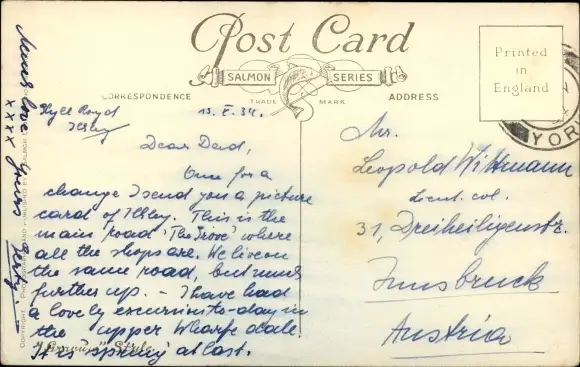 Post Card
SALMON SERIES
TRADE MARK
CORRESPONDENCE
ADDRESS
Printed
in
England
YOR
Ghyll Royd
Ilkley
13. V. 34.
Dear Dad,
Once for a
change I send you a picture
card of Ilkley. This is the
main road 'The Grove' where
all the shops are. We live on
the same road, but much
further up. – I have had
a lovely excursion to-day in
the upper Wharfe dale.
It is spring at last.
Much love yours
xxxx
Mr.
Leopold Wittmann
Lieut. col.
31, Dreiheiligenstr.
Innsbruck
Austria
"Gravure" Style